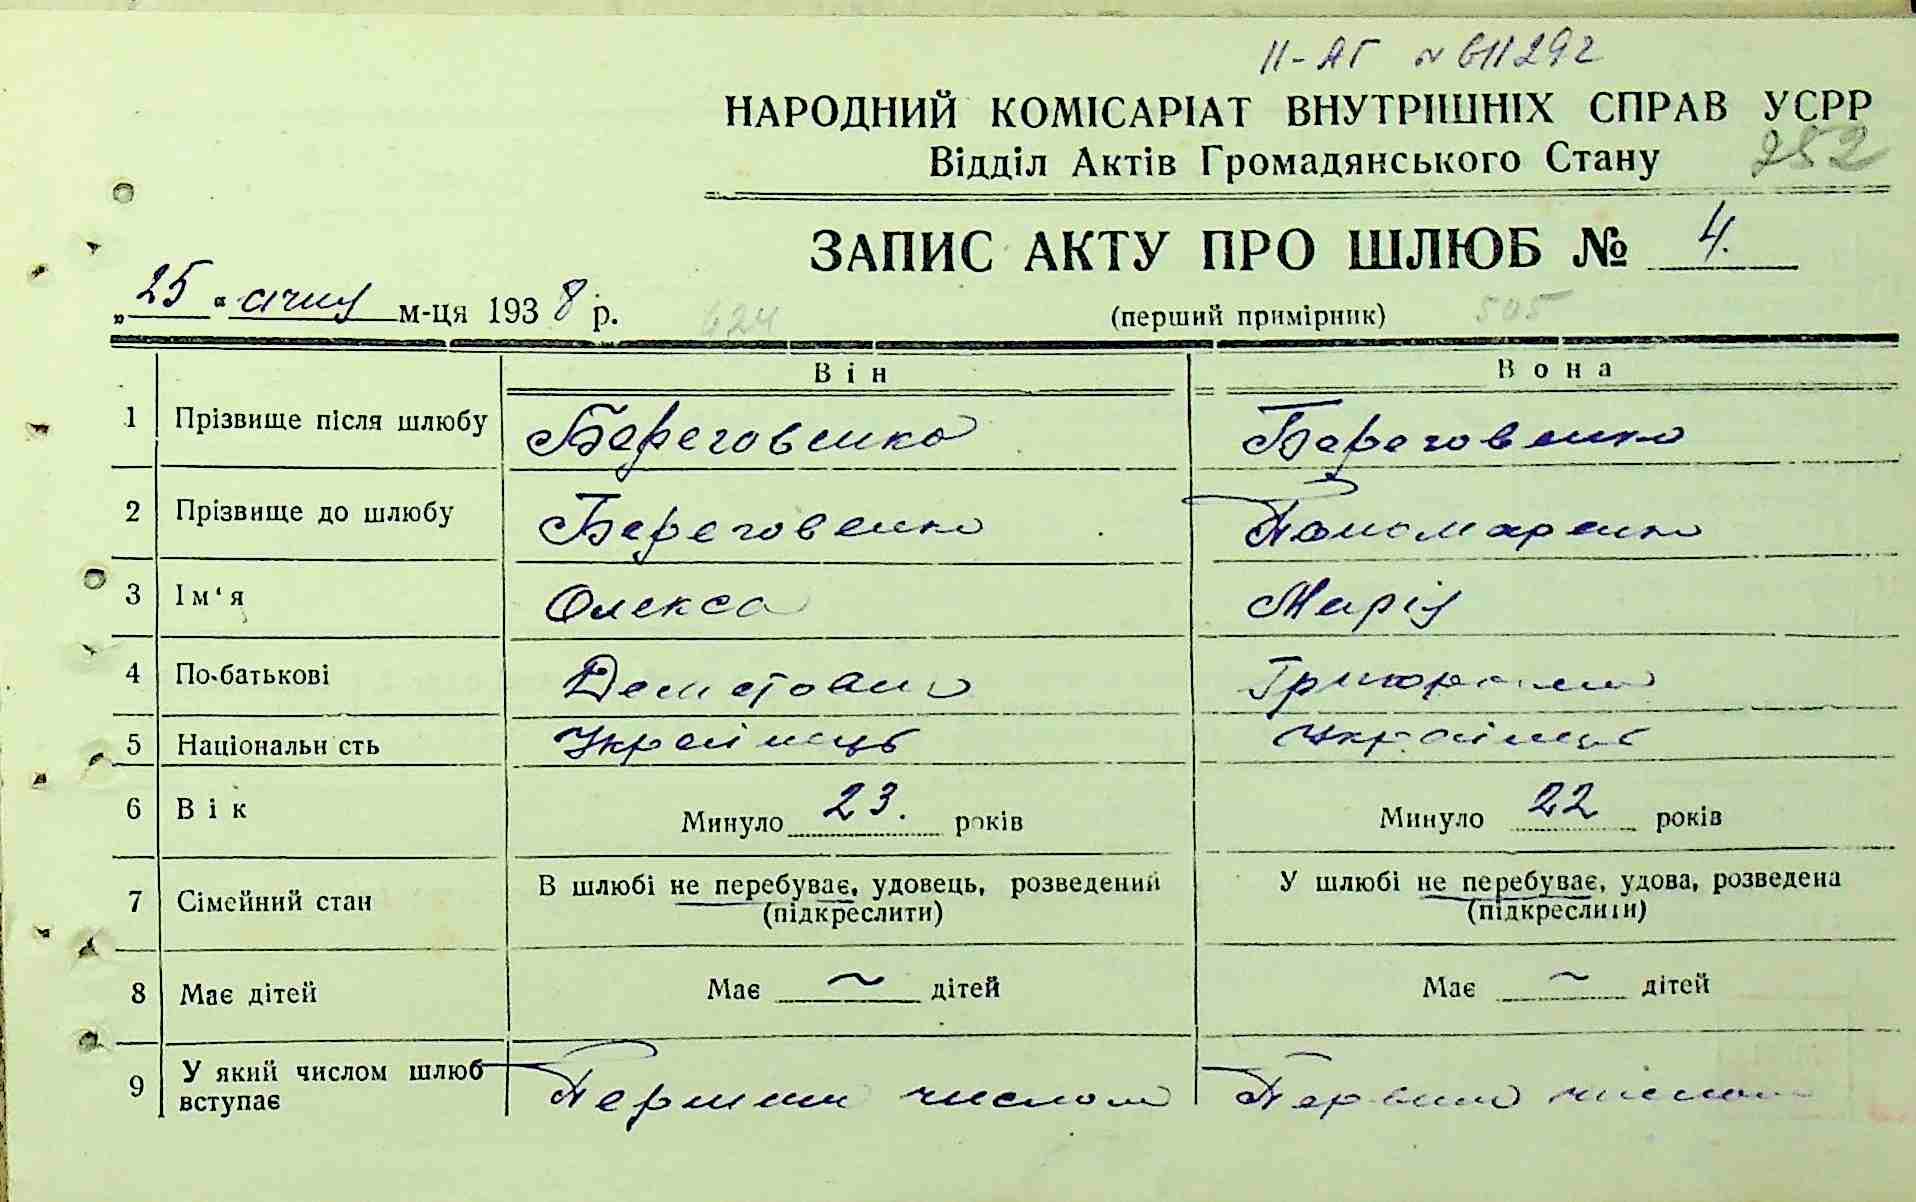 II-АГ № 611292
НАРОДНИЙ КОМІСАРІАТ ВНУТРІШНІХ СПРАВ УСРР
Відділ Актів Громадянського Стану 252
ЗАПИС АКТУ ПРО ШЛЮБ № 4.
„25" січня м-ця 1938 р. 624 (перший примірник) 505
Він Вона
1 Прізвище після шлюбу Береговенко Береговенко
2 Прізвище до шлюбу Береговенко Пономаренко
3 Ім'я Олекса Марія
4 По-батькові
5 Національн сть Українець Українець
6 Вік Минуло 23. років Минуло 22 років
7 Сімейний стан В шлюбі не перебуває, удовець, розведений У шлюбі не перебуває, удова, розведена
(підкреслити) (підкреслити)
8 Має дітей Має ~ дітей Має ~ дітей
9 У який числом шлюб
вступає Першим числом Первим числом